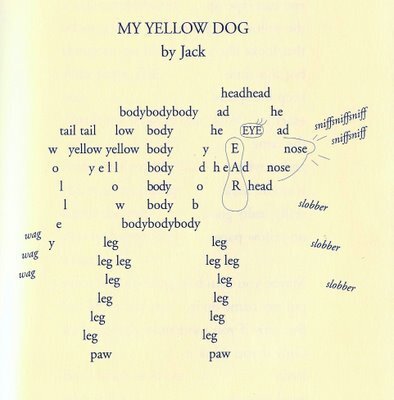 MY YELLOW DOG
by Jack
headhead
bodybodybody ad he
sniffsniffsniff
tail tail low body he EYE ad
sniffsniff
w yellow yellow body y E nose
o y e l l body d h e A d nose
l o body o R head
l w body b slobber
e bodybodybody
wag
y leg leg slobber
wag leg leg leg leg
wag leg leg slobber
leg leg
leg leg
leg leg
paw paw